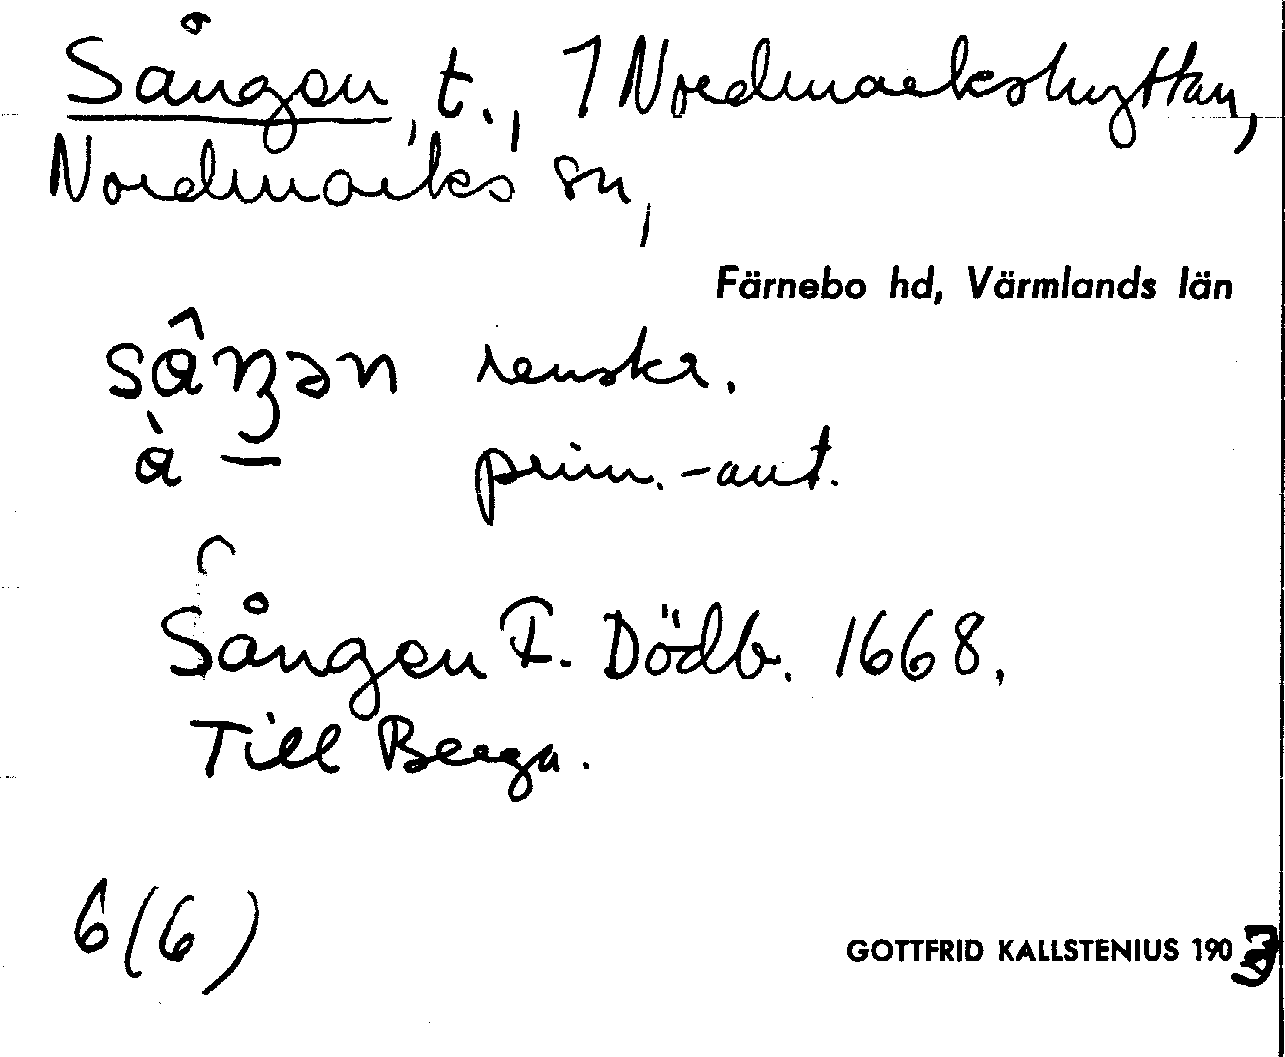 Sången, t., 1 Nordmarkshyttan,
Nordmarks sn,
Färnebo hd, Värmlands län
sâŋən renskr.
à — prim.-ant.
Sången F. Dödb. 1668.
Till Berga.
6(6)
GOTTFRID KALLSTENIUS 1903